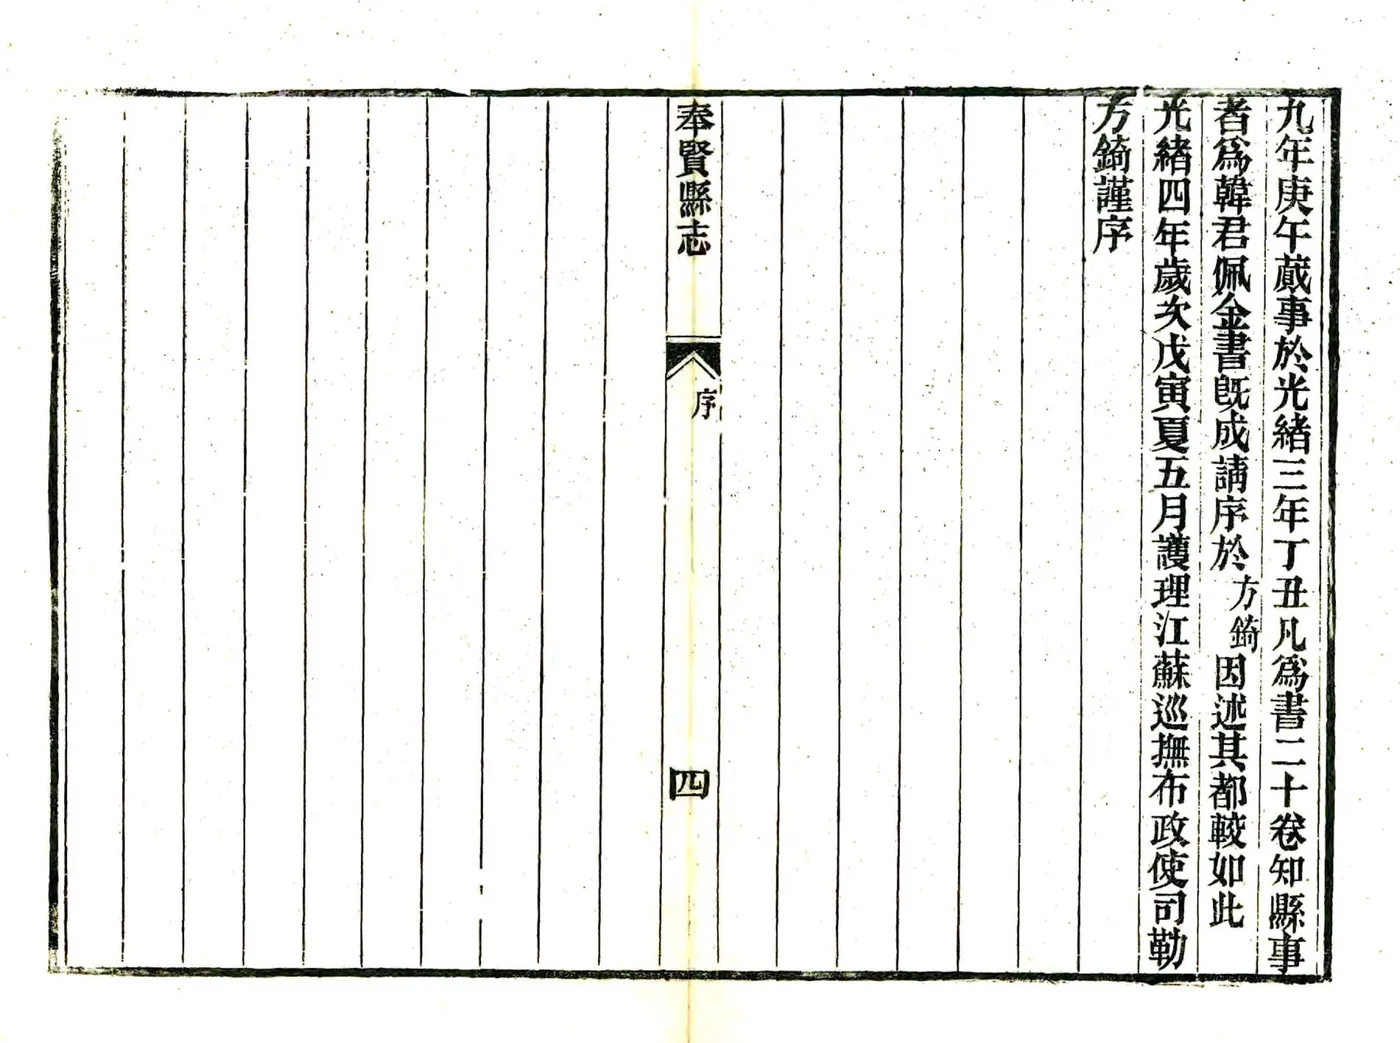 九年庚午蕆事於光緒三年丁丑凡爲書二十卷知縣事
者爲韓君佩金書旣成請序於方錡因述其都較如此
光緒四年歲次戊寅夏五月護理江蘇巡撫布政使司勒
方錡謹序
奉賢縣志
序
四